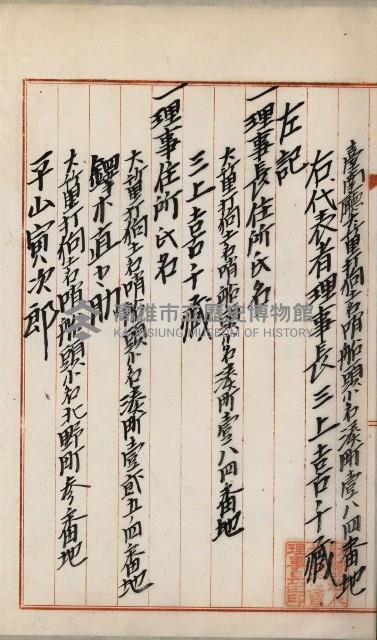 臺南廳大竹里打狗土名哨船頭小名湊町壹八四番地
右代表者理事長三上喜千藏
左記
一理事長住所氏名
大竹里打狗土名哨船頭小名湊町壹八四番地
三上喜千藏
一理事住所氏名
大竹里打狗土名哨船頭小名湊町壹貳五ノ四番地
鐸木直之助
大竹里打狗土名哨船頭小名北野町參番地
平山寅次郎
高雄市立歷史博物館
KAOHSIUNG MUSEUM OF HISTORY